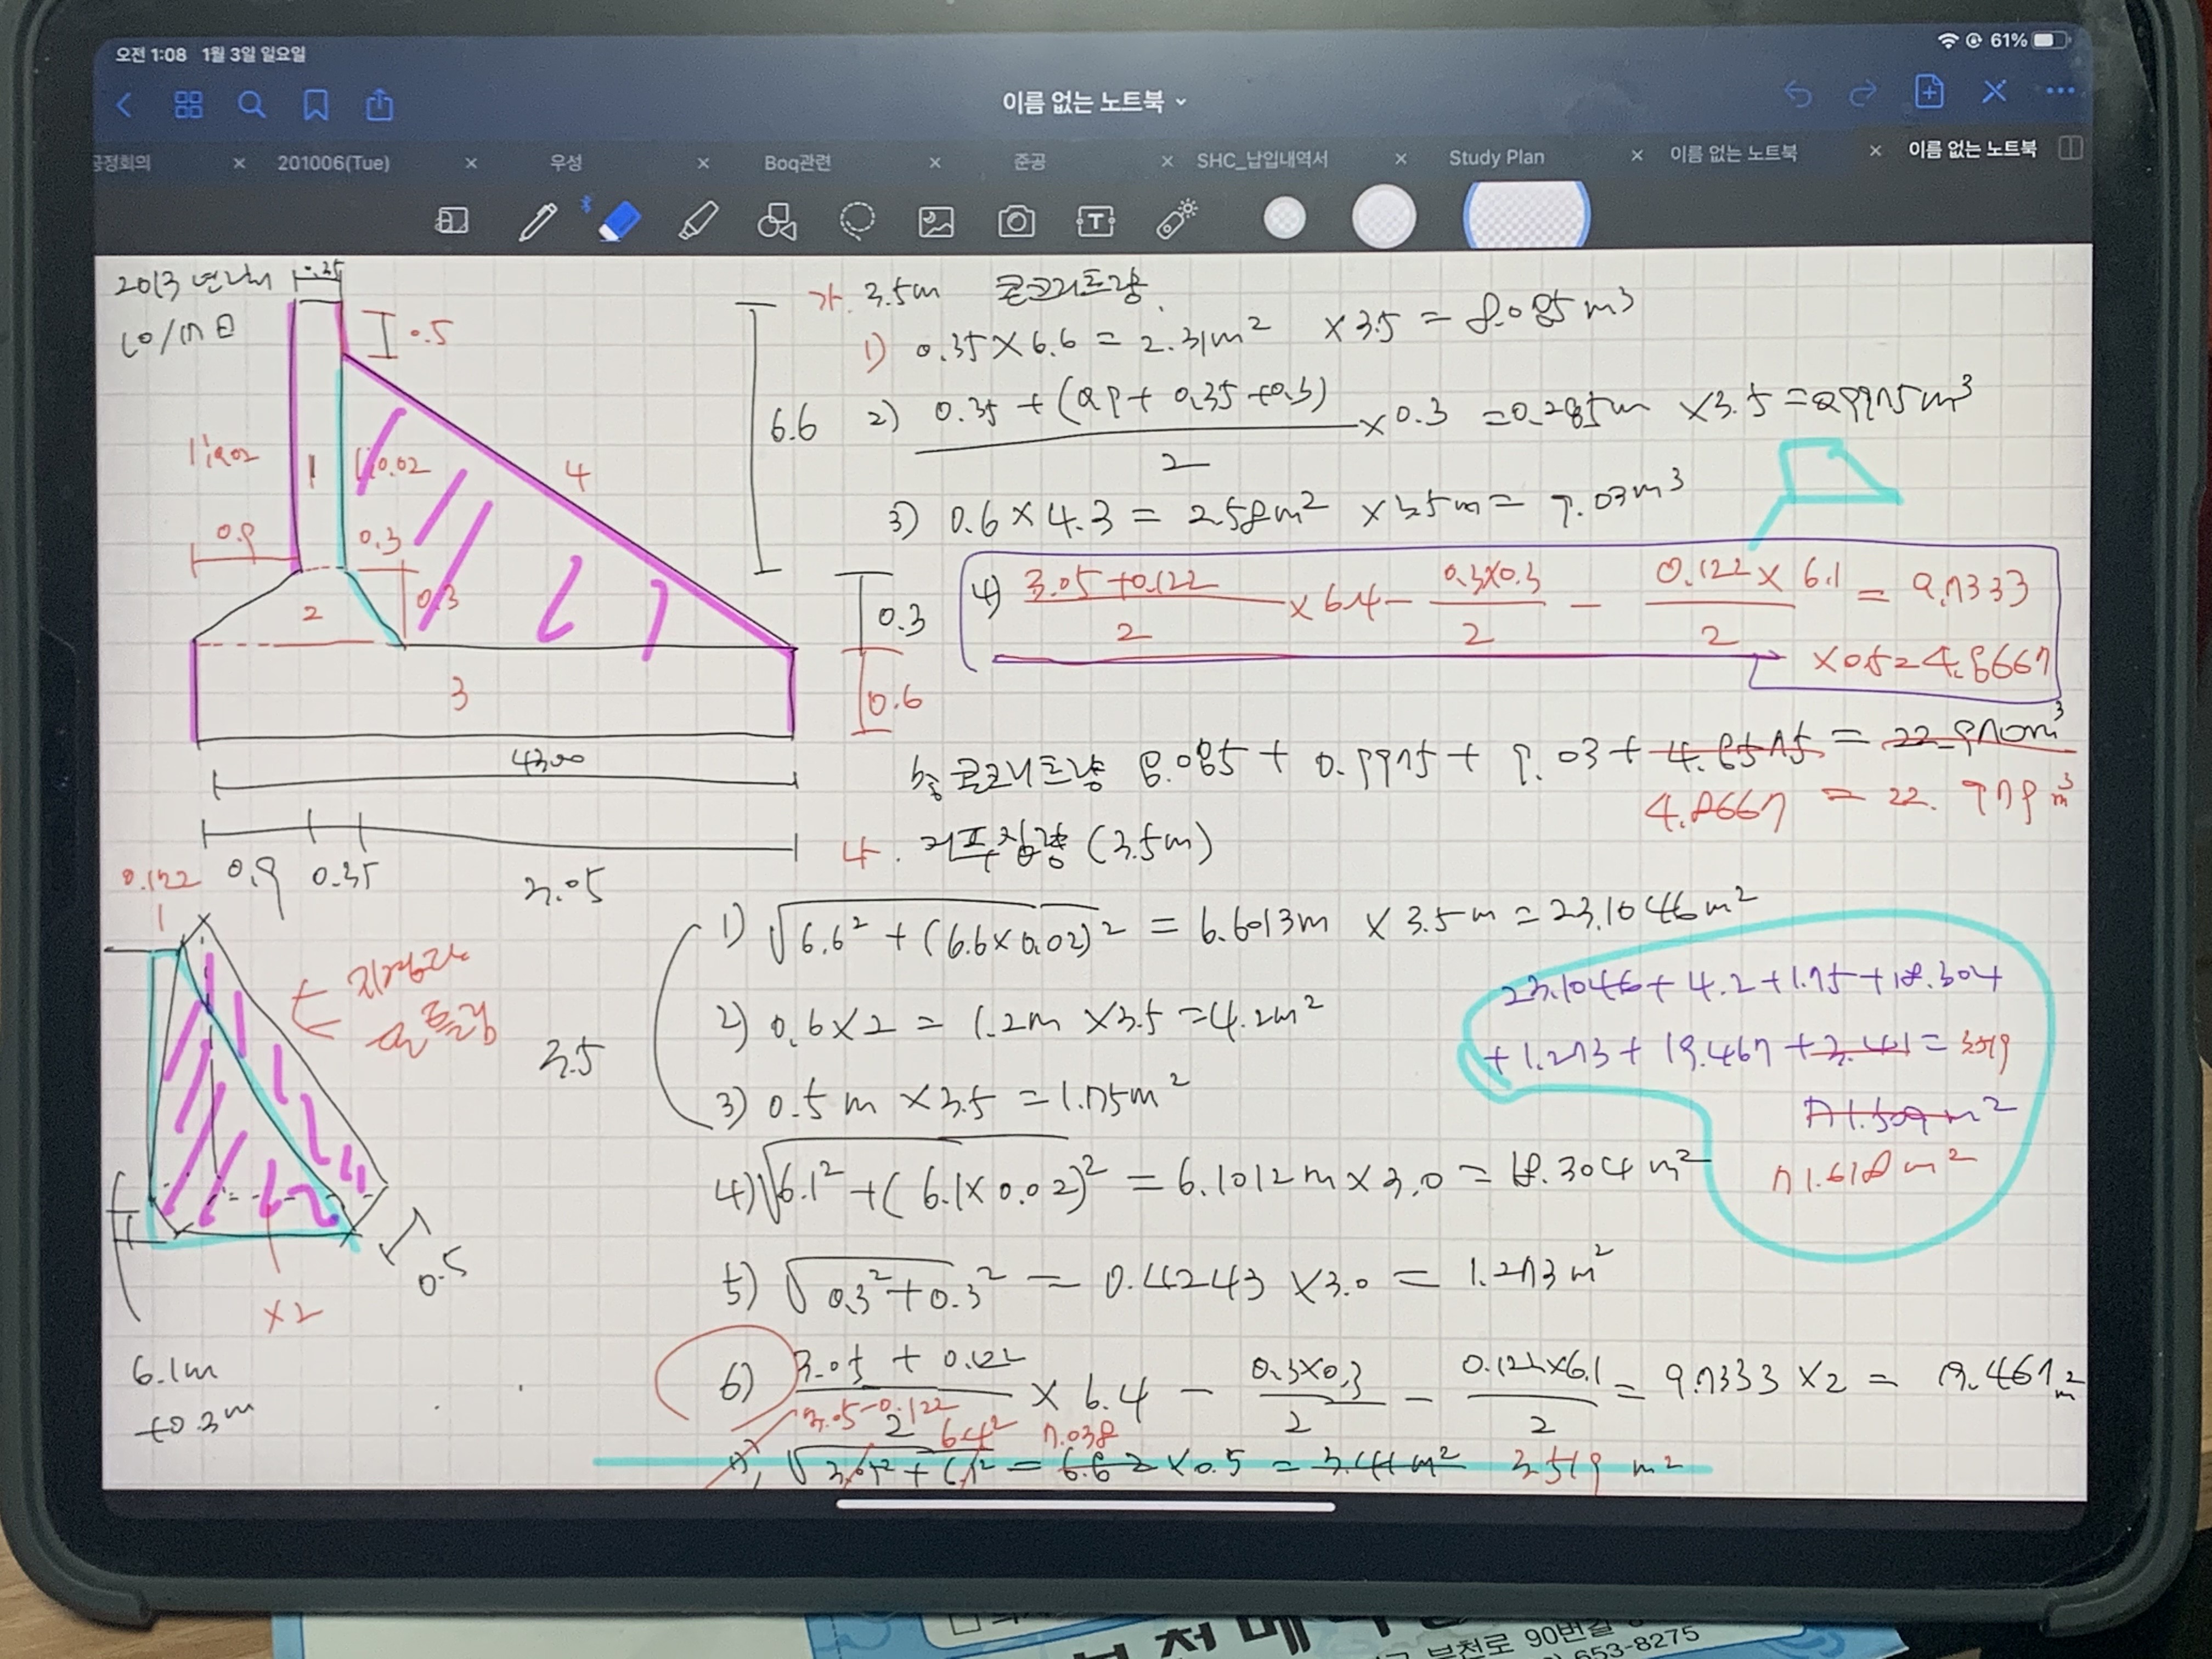 오전 1:08 1월 3일 일요일
61%
이름 없는 노트북
공정회의
201006(Tue)
우성
Boq관련
준공
SHC_납입내역서
Study Plan
이름 없는 노트북
이름 없는 노트북
2013년
10/m
0.35
0.5
6.6
1:0.02
1
1:0.02
4
0.9
0.3
0.3
2
3
0.3
0.6
4300
0.9 0.35 3.05
0.122
3.5
0.5
×2
6.1m
+0.3m
가. 3.5m 콘크리트량
1) 0.35×6.6 = 2.31m² ×3.5 = 8.085m³
2) 0.35 + (0.9 + 0.35 + 0.3) / 2 × 0.3 = 0.285m ×3.5 = 0.9975m³
3) 0.6 × 4.3 = 2.58m² ×3.5m = 9.03m³
4) 3.05 + 0.122 / 2 × 6.4 - 0.3×0.3 / 2 - 0.122 × 6.1 / 2 = 9.7333
×0.5 = 4.8667
총 콘크리트량 8.085 + 0.9975 + 9.03 + 4.8575 = 22.970m³
4.8667 = 22.979m³
나. 거푸집량 (3.5m)
1) √6.6² + (6.6×0.02)² = 6.6013m × 3.5m = 23.1046m²
2) 0.6×2 = 1.2m ×3.5 = 4.2m²
3) 0.5m ×3.5 = 1.75m²
4) √6.1² + (6.1×0.02)² = 6.1012m × 3.0 = 18.304m²
5) √0.3² + 0.3² = 0.4243 ×3.0 = 1.273m²
6) 3.05 + 0.122 / 2 × 6.4 - 0.3×0.3 / 2 - 0.122×6.1 / 2 = 9.7333 ×2 = 19.467m²
3.05-0.122 6.4² 7.038
= 6.82 ×0.5 = 3.41m² 3.519m²
23.1046 + 4.2 + 1.75 + 18.304
+ 1.273 + 19.467 + 3.441 = 3.519
71.509m²
71.618m²
90번길
653-8275